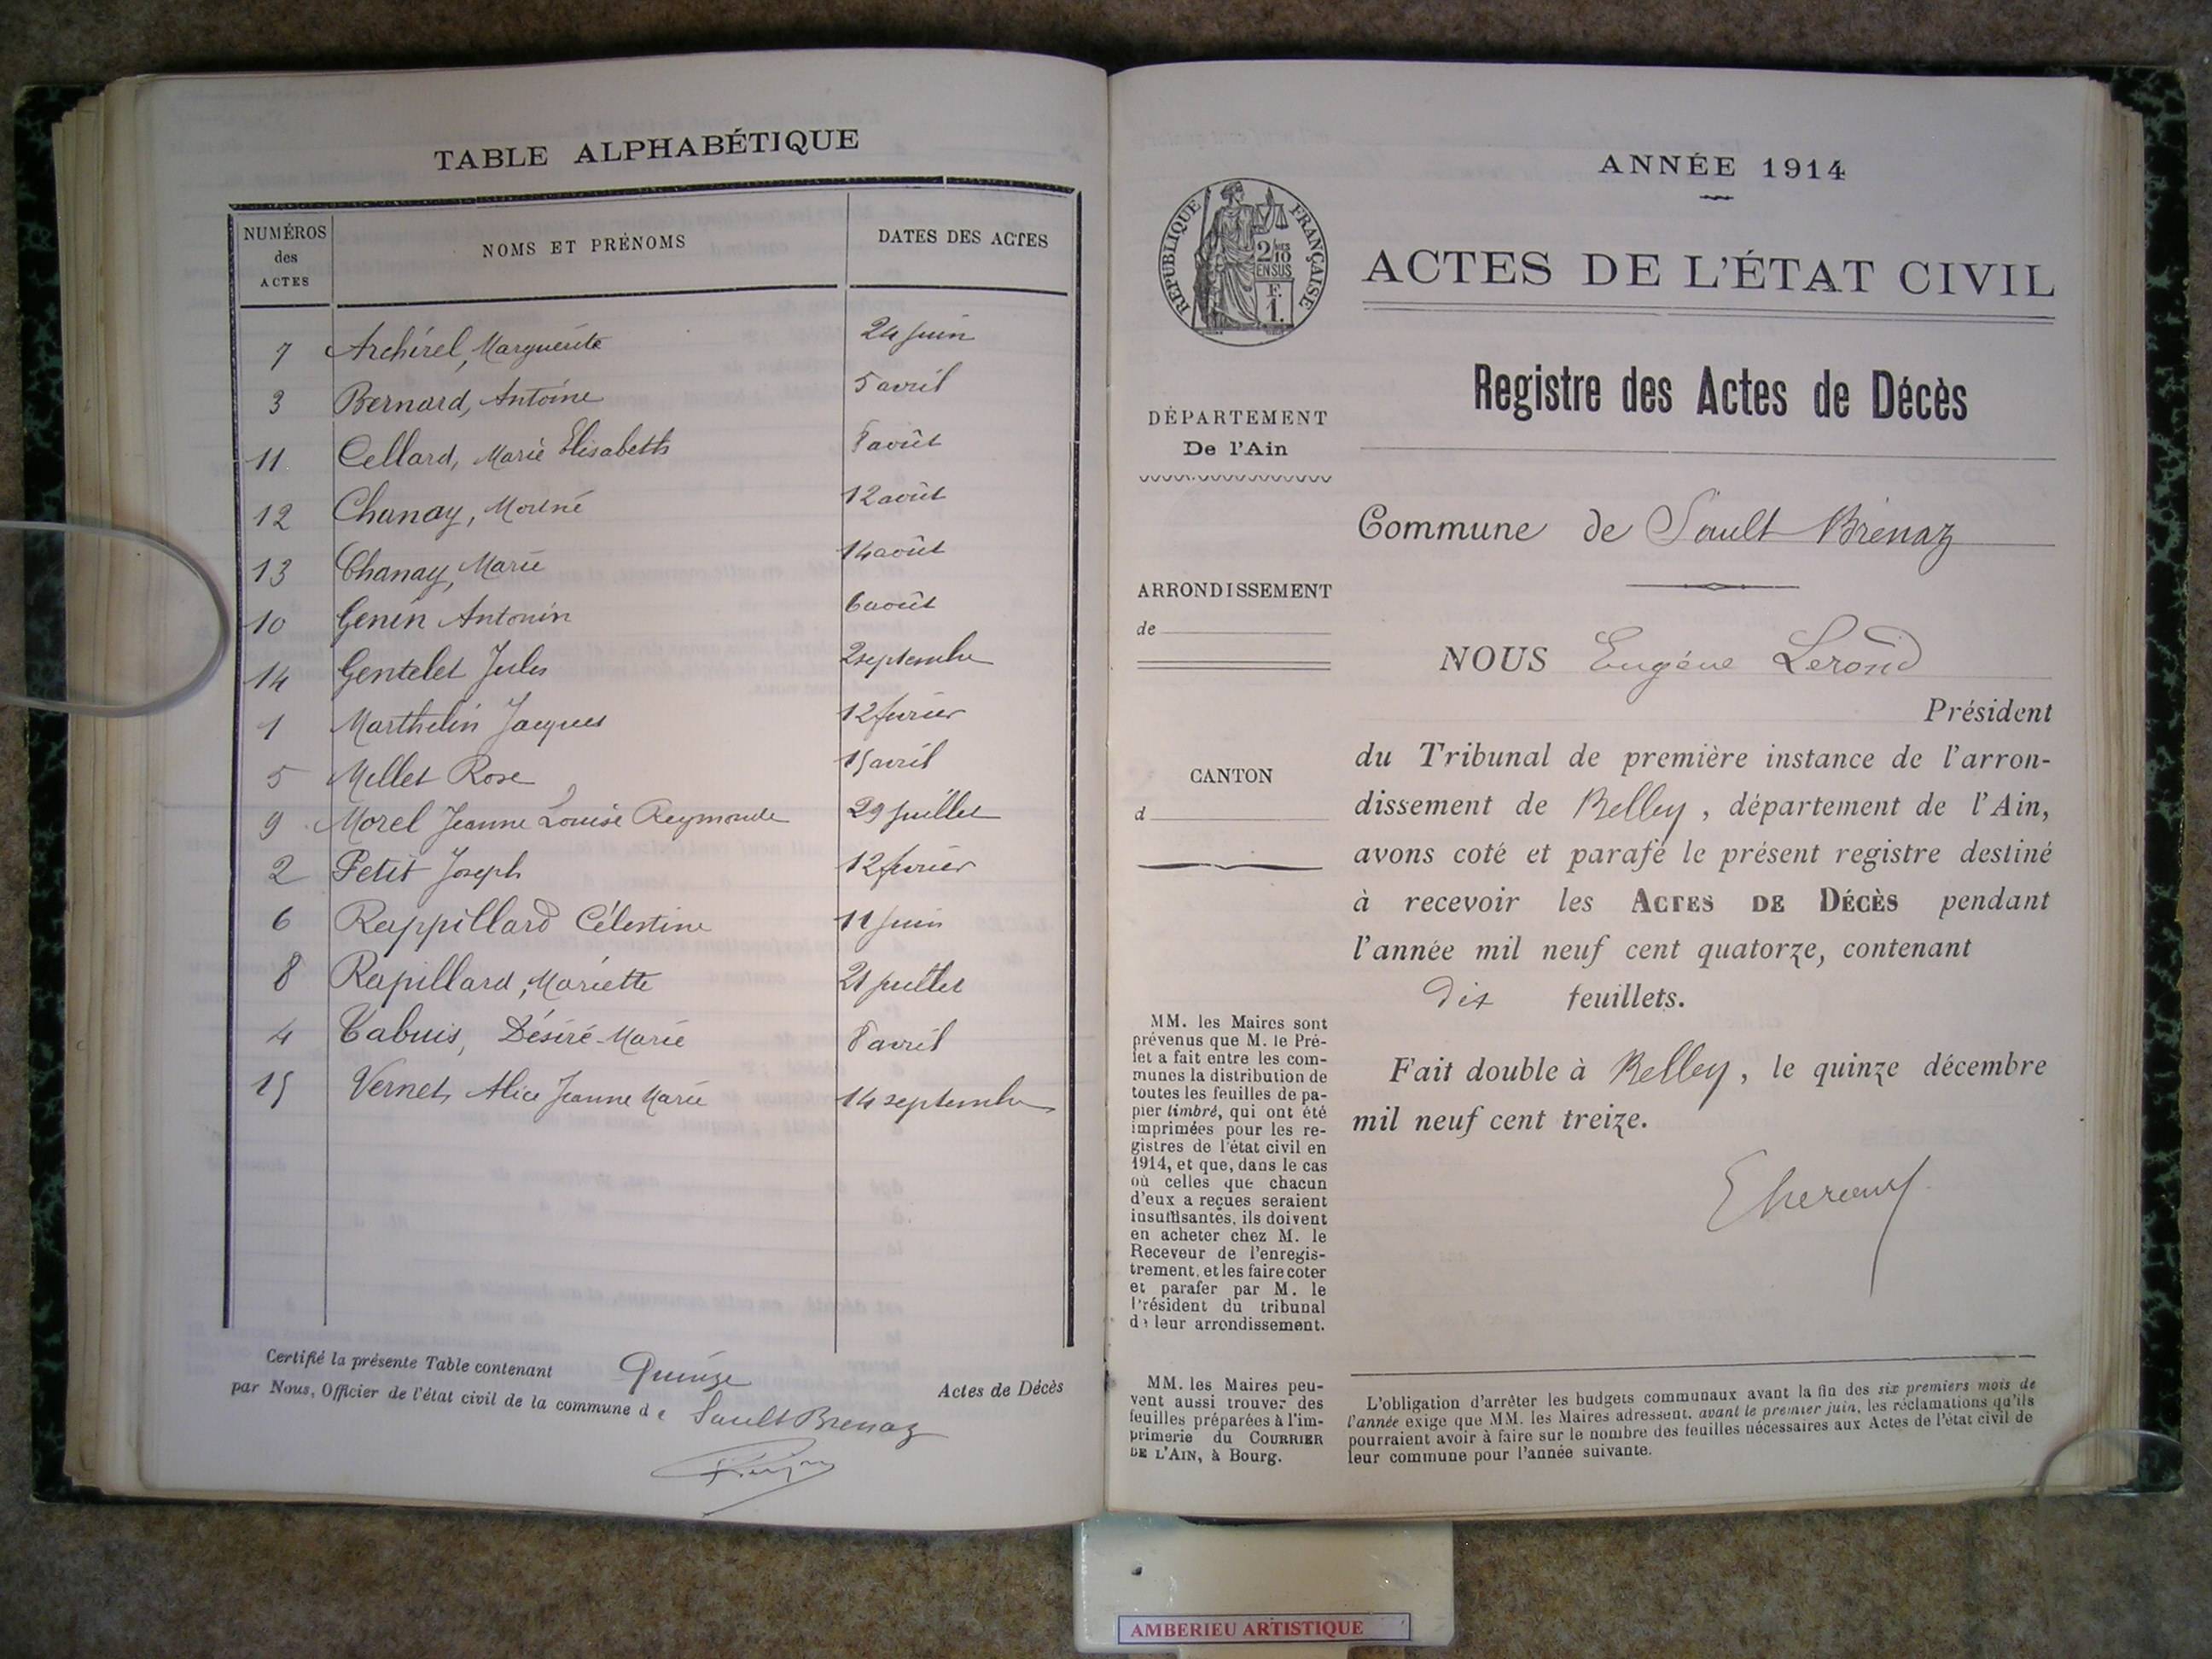 TABLE ALPHABÉTIQUE
NUMÉROS
des
ACTES
NOMS ET PRÉNOMS
DATES DES ACTES
7 Archirel, Marguerite 24 juin
3 Bernard, Antoine 5 avril
11 Cellard, Marie Elisabeth 8 août
12 Chanay, Mort né 12 août
13 Chanay, Marie 14 août
10 Genin Antonin 6 août
14 Gentelet Jules 2 septembre
1 Marthelin Jacques 12 février
5 Millet Rose 15 avril
9 Morel Jeanne Louise Reymonde 29 juillet
2 Petit Joseph 12 février
6 Rappillard Célestine 11 juin
8 Rapillard, Mariette 21 juillet
4 Tabuis, Désiré-Marie 8 avril
15 Vernet, Alice Jeanne Marie 14 septembre
Certifié la présente Table contenant Quinze Actes de Décès
par Nous, Officier de l'état civil de la commune de Sault Brenaz
RÉPUBLIQUE FRANÇAISE
2/10
EN SUS
F.
1.
DÉPARTEMENT
De l'Ain
ARRONDISSEMENT
de
CANTON
d
MM. les Maires sont
prévenus que M. le Pré-
fet a fait entre les com-
munes la distribution de
toutes les feuilles de pa-
pier timbré, qui ont été
imprimées pour les re-
gistres de l'état civil en
1914, et que, dans le cas
où celles que chacun
d'eux a reçues seraient
insuffisantes, ils doivent
en acheter chez M. le
Receveur de l'enregis-
trement, et les faire coter
et parafer par M. le
Président du tribunal
de leur arrondissement.
MM. les Maires peu-
vent aussi trouver des
feuilles préparées à l'im-
primerie du COURRIER
DE L'AIN, à Bourg.
ANNÉE 1914
ACTES DE L'ÉTAT CIVIL
Registre des Actes de Décès
Commune de Sault Brénaz
NOUS Eugène Lerond
Président
du Tribunal de première instance de l'arron-
dissement de Belley, département de l'Ain,
avons coté et parafé le présent registre destiné
à recevoir les ACTES DE DÉCÈS pendant
l'année mil neuf cent quatorze, contenant
dix feuillets.
Fait double à Belley, le quinze décembre
mil neuf cent treize.
L'obligation d'arrêter les budgets communaux avant la fin des six premiers mois de
l'année exige que MM. les Maires adressent, avant le premier juin, les réclamations qu'ils
pourraient avoir à faire sur le nombre des feuilles nécessaires aux Actes de l'état civil de
leur commune pour l'année suivante.
AMBERIEU ARTISTIQUE